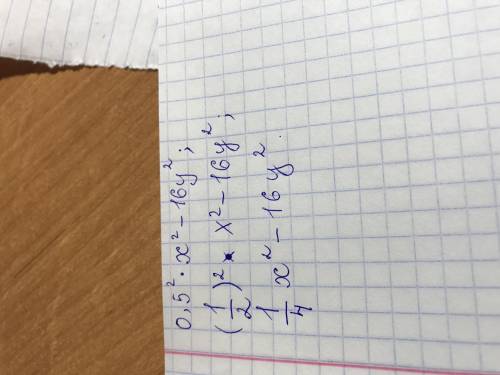 0,5² · x² - 16y²;
(1/2)² · x² - 16y²;
1/4 x² - 16y².